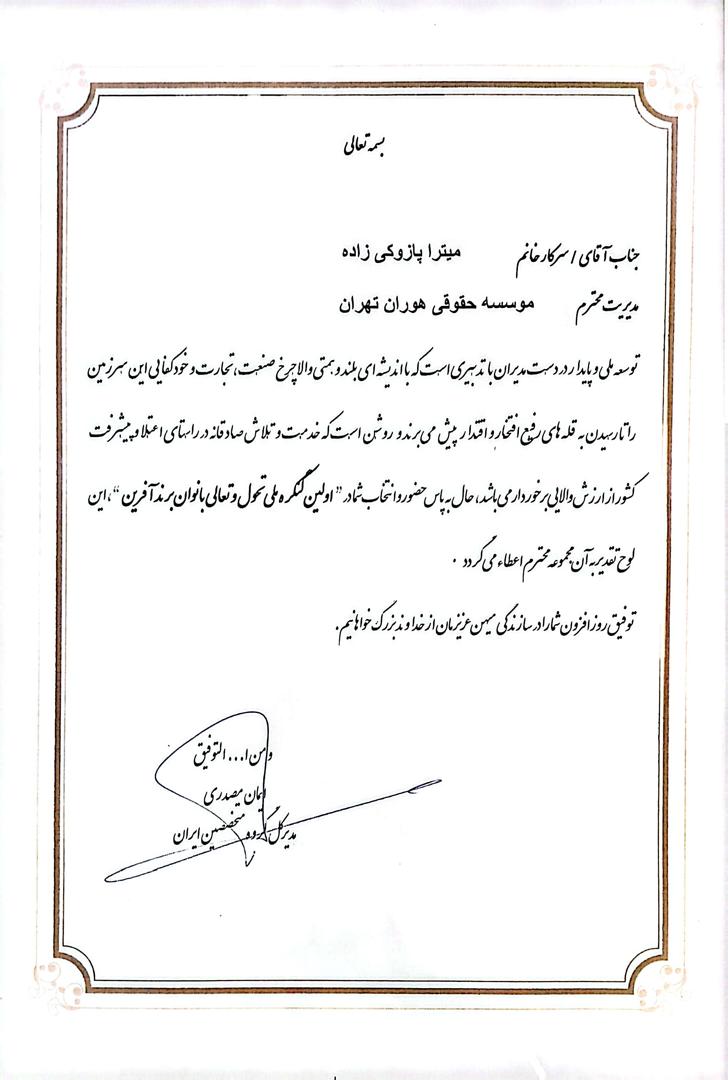 بسمه تعالی
جناب آقای / سرکار خانم میترا پازوکی زاده
مدیریت محترم موسسه حقوقی هوران تهران
توسعه ملی و پایدار در دست مدیران با تدبیری است که با اندیشه ای بلند و همتی والا چرخ صنعت، تجارت و خودکفایی این سرزمین
را تا رسیدن به قله های رفیع افتخار و اقتدار پیش می برند و روشن است که خدمت و تلاش صادقانه در راستای اعتلا و پیشرفت
کشور از ارزش والایی برخوردار می باشد، حال به پاس حضور و انتخاب شما در " اولین کنگره ملی تحول و تعالی بانوان برند آفرین "، این
لوح تقدیر به آن مجموعه محترم اعطاء می گردد .
توفیق روز افزون شما را در سازندگی میهن عزیزمان از خداوند بزرگ خواهانیم.
و من ا... التوفیق
ایمان مصدری
مدیر کل گروه متخصصین ایران